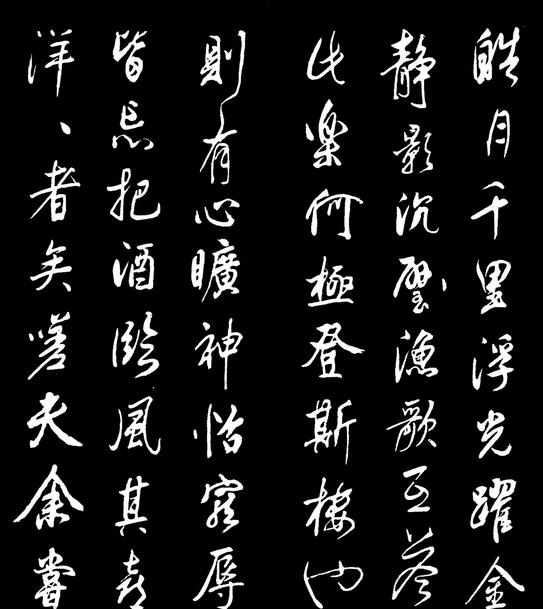 皓月千里浮光躍金
静影沉璧漁歌互答
此樂何極登斯樓也
則有心曠神怡寵辱
皆忘把酒臨風其喜
洋、者矣嗟夫余嘗